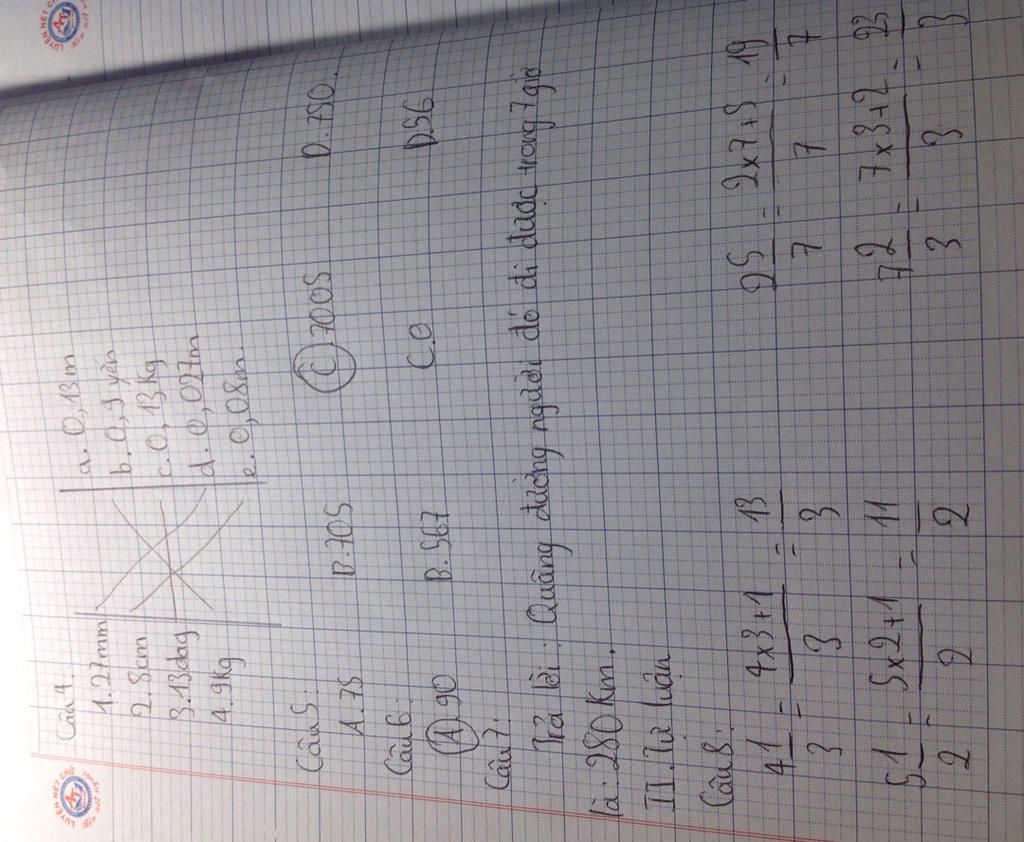 Câu 4
1. 27mm
a. 0,13m
2. 8cm
b. 0,9 yến
3. 13dag
c. 0,13kg
4. 9kg
d. 0,027m
e. 0,08m.
Câu 5:
A. 75 B. 705 C. 7005 D. 750.
Câu 6:
A. 90 B. 567 C. 0 D. 56
Câu 7:
Trả lời: Quãng đường người đó đi được trong 7 giờ
là: 280 km.
II. Tự luận
Câu 8:
4 1/3 = 4x3+1/3 = 13/3 2 5/7 = 2x7+5/7 = 19/7
5 1/2 = 5x2+1/2 = 11/2 7 2/3 = 7x3+2/3 = 23/3